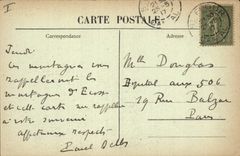 I
CARTE POSTALE
Correspondance
Adresse
Jeudi
Ces montagnes vous
rappelleront les
montagnes d'Ecosse
et cette carte vous rappellera
à votre souvenir
affectueux respects
Mlle Douglas
Hopital aux 506
19 Rue Balzac
Paris